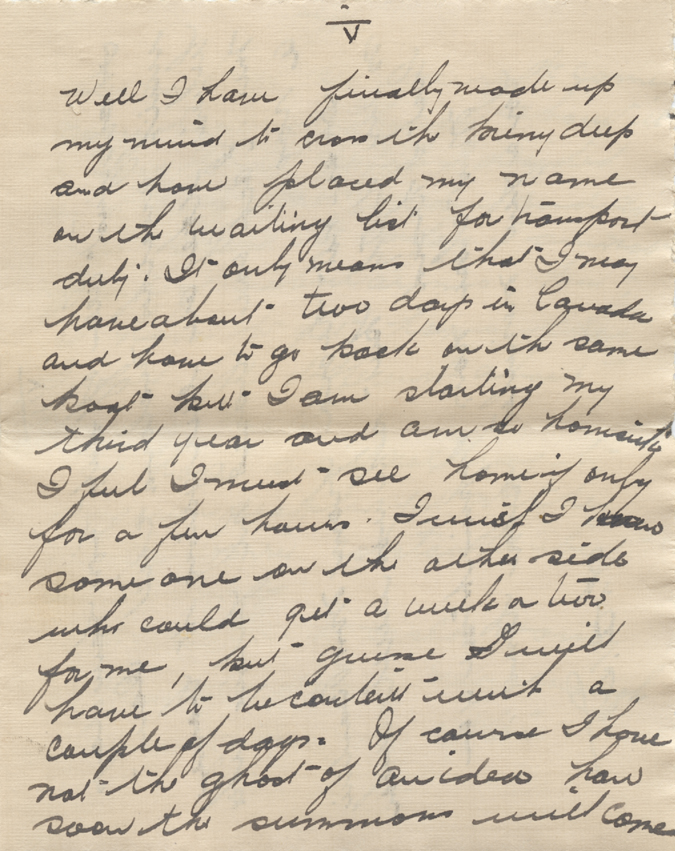 V
Well I have finally made up
my mind to cross the briny deep
and have placed my name
on the waiting list for transport
duty. It only means that I may
have about two days in Canada
and have to go back on the same
boat but I am starting my
third year and am so homesick
I feel I must see home if only
for a few hours. I wish I knew
some one on the other side
who could get a week or two
for me, but guess I will
have to be content with a
couple of days. Of course I have
not the ghost of an idea how
soon the summons will come